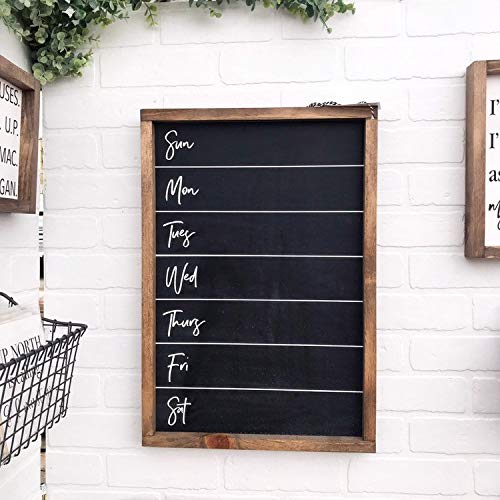 USES.
. U.P.
MAC.
GAN.
Sun
Mon
Tues
Wed
Thurs
Fri
Sat
I'
I'
as
UP NORTH